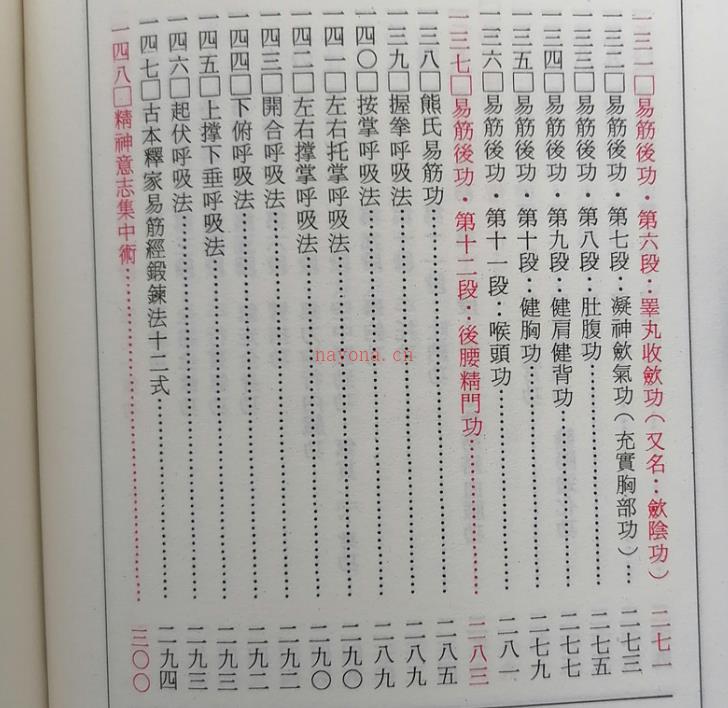 一三一□易筋後功．第六段：睾丸收歛功（又名：歛陰功）二七一
一三二□易筋後功．第七段：凝神歛氣功（充實胸部功）…二七三
一三三□易筋後功．第八段：肚腹功……二七五
一三四□易筋後功．第九段：健肩健背功……二七七
一三五□易筋後功．第十段：健胸功……二七九
一三六□易筋後功．第十一段：喉頭功……二八一
一三七□易筋後功．第十二段：後腰精門功……二八三
一三八□熊氏易筋功……二八五
一三九□握拳呼吸法……二八九
一四〇□按掌呼吸法……二八九
一四一□左右托掌呼吸法……二九〇
一四二□左右撐掌呼吸法……二九〇
一四三□開合呼吸法……二九二
一四四□下俯呼吸法……二九二
一四五□上撐下垂呼吸法……二九三
一四六□起伏呼吸法……二九三
一四七□古本釋家易筋經鍛鍊法十二式……二九四
一四八□精神意志集中術……三〇〇
nayona.cn